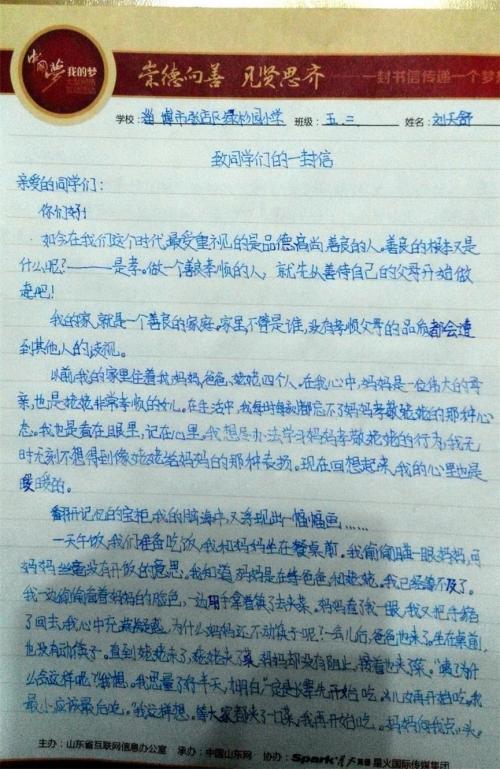 中国梦 我的梦
崇德向善 见贤思齐 一封书信传递一个梦
学校:淄博市张店区绿杉园小学 班级:五.三 姓名:刘天舒
致同学们的一封信
亲爱的同学们:
你们好!
如今在我们这个时代,最受重视的是品德高尚,善良的人。善良的根本又是
什么呢?———是孝。做一个善良孝顺的人,就先从善待自己的父母开始做
起吧!
我的家,就是一个善良的家庭。家里不管是谁,没有孝顺父母的品质都会遭
到其他人的歧视。
以前,我的家里住着我,妈妈,爸爸,姥姥四个人。在我心中,妈妈是一位伟大的母
亲,也是姥姥非常孝顺的女儿。在生活中,我每时每刻都忘不了妈妈孝敬姥姥的那种心
态。我也是看在眼里,记在心里。我想尽办法学习妈妈孝敬姥姥的行为,我无
时无刻不想得到像姥姥给妈妈的那种表扬。现在回想起来,我的心里也是
暖暖的。
翻开记忆的宝柜,我的脑海中又浮现出一幅幅画……
一天午饭,我们准备吃饭,我和妈妈坐在餐桌前。我偷偷瞄一眼妈妈,可
妈妈丝毫没有开饭的意思,我知道妈妈是在等爸爸和姥姥。我已经等不及了。
我一边偷偷看着妈妈的脸色,一边用手拿着筷子去夹菜。妈妈看了我一眼,我又把手缩
了回去。我心中充满疑惑,为什么妈妈还不动筷子呢?一会儿后,爸爸也来了。坐在桌前,
也没有动筷子。直到姥姥来了,姥姥夹了菜,妈妈却没有阻止,接着也夹了菜。“咦?为什
么会这样呢?”我想。我思量了好半天,才明白“一定是长辈先开始吃,小儿再开始吃。我
最小,应该最后吃。”我这样想。等大家都夹了一口菜,我再开始吃。妈妈向我点了头。
主办:山东省互联网信息办公室 承办:中国山东网 协办:Spark星火英语 星火国际传媒集团